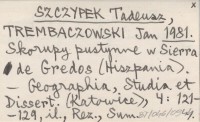 x
SZCZYPEK Tadeusz,
TREMBACZOWSKI Jan 1981.
Skorupy pustynne w Sierra
de Gredos (Hiszpania).
- Geographia, Studia et
Dissert. (Katowice), 4: 121-
-129, il., Rez., Sum.